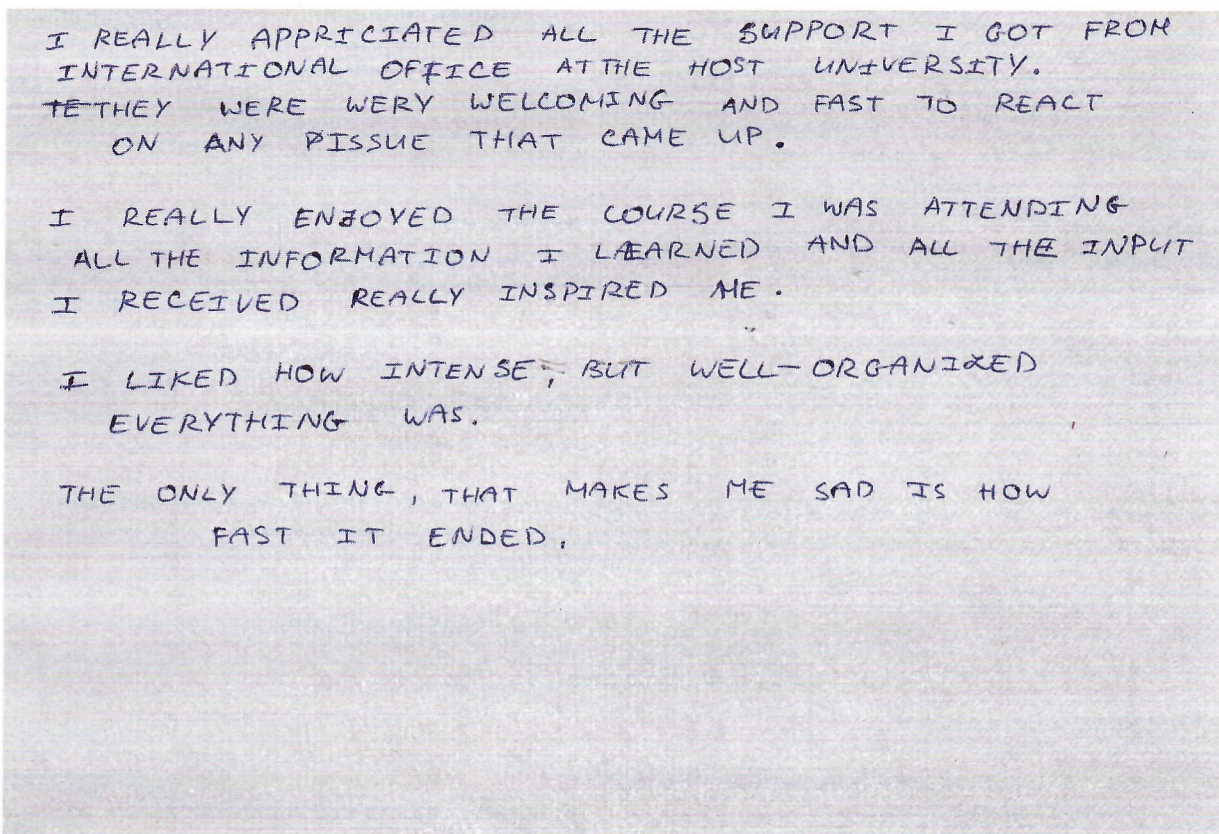 I REALLY APPRICIATED ALL THE SUPPORT I GOT FROM
INTERNATIONAL OFFICE AT THE HOST UNIVERSITY.
TE THEY WERE WERY WELCOMING AND FAST TO REACT
ON ANY PISSUE THAT CAME UP.
I REALLY ENJOYED THE COURSE I WAS ATTENDING
ALL THE INFORMATION I LEARNED AND ALL THE INPUT
I RECEIVED REALLY INSPIRED ME.
I LIKED HOW INTENSE, BUT WELL-ORGANIZED
EVERYTHING WAS.
THE ONLY THING, THAT MAKES ME SAD IS HOW
FAST IT ENDED.